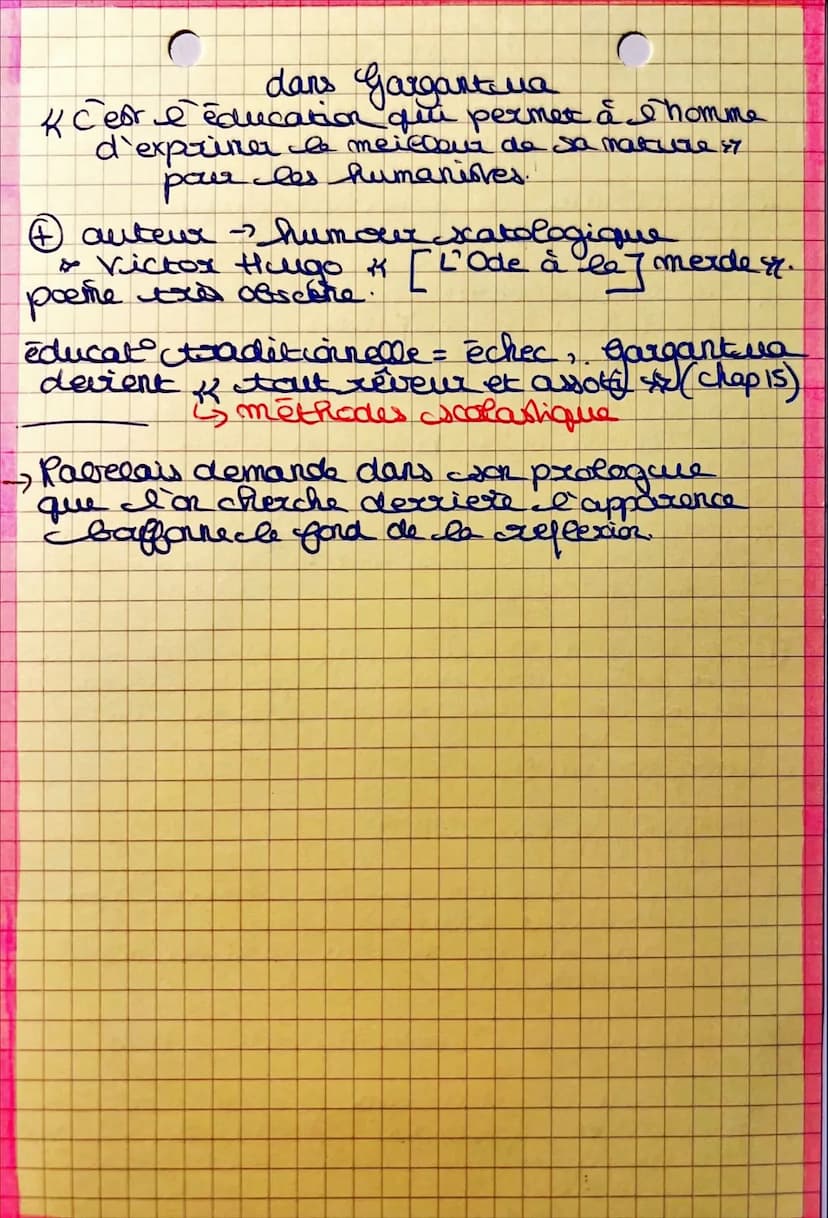 dans Gargantua
« C'est l'éducation qui permet à l'homme
d'exprimer le meilleur de sa nature »
pour les humanistes.
⊕ auteur → humour scatologique
Victor Hugo « [L'Ode à la] merde ».
poème très obscène.
éducat° traditionnelle = échec, Gargantua
devient « tout rêveur et assoté » (chap 15)
↳ méthodes scolastique
→ Rabelais demande dans son prologue
que l'on cherche derriere l'apparence
bouffonne le fond de la reflexion.